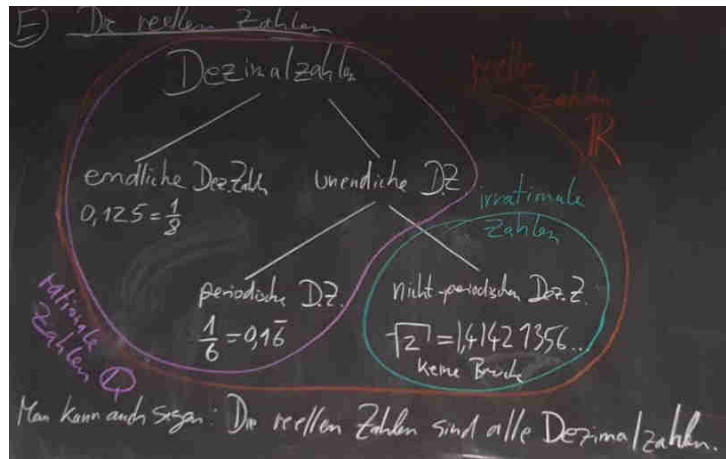 E) Die reellen Zahlen
Dezimalzahlen
reelle
Zahlen
ℝ
endliche Dez.Zahln
unendliche D.Z.
0,125 = 1/8
irrationale
Zahlen
periodische D.Z.
nicht-periodischen Dez.Z.
1/6 = 0,16̅
√2 = 1,41421356...
keine Brüche
rationale
Zahlen ℚ
Man kann auch sagen: Die reellen Zahlen sind alle Dezimalzahlen.